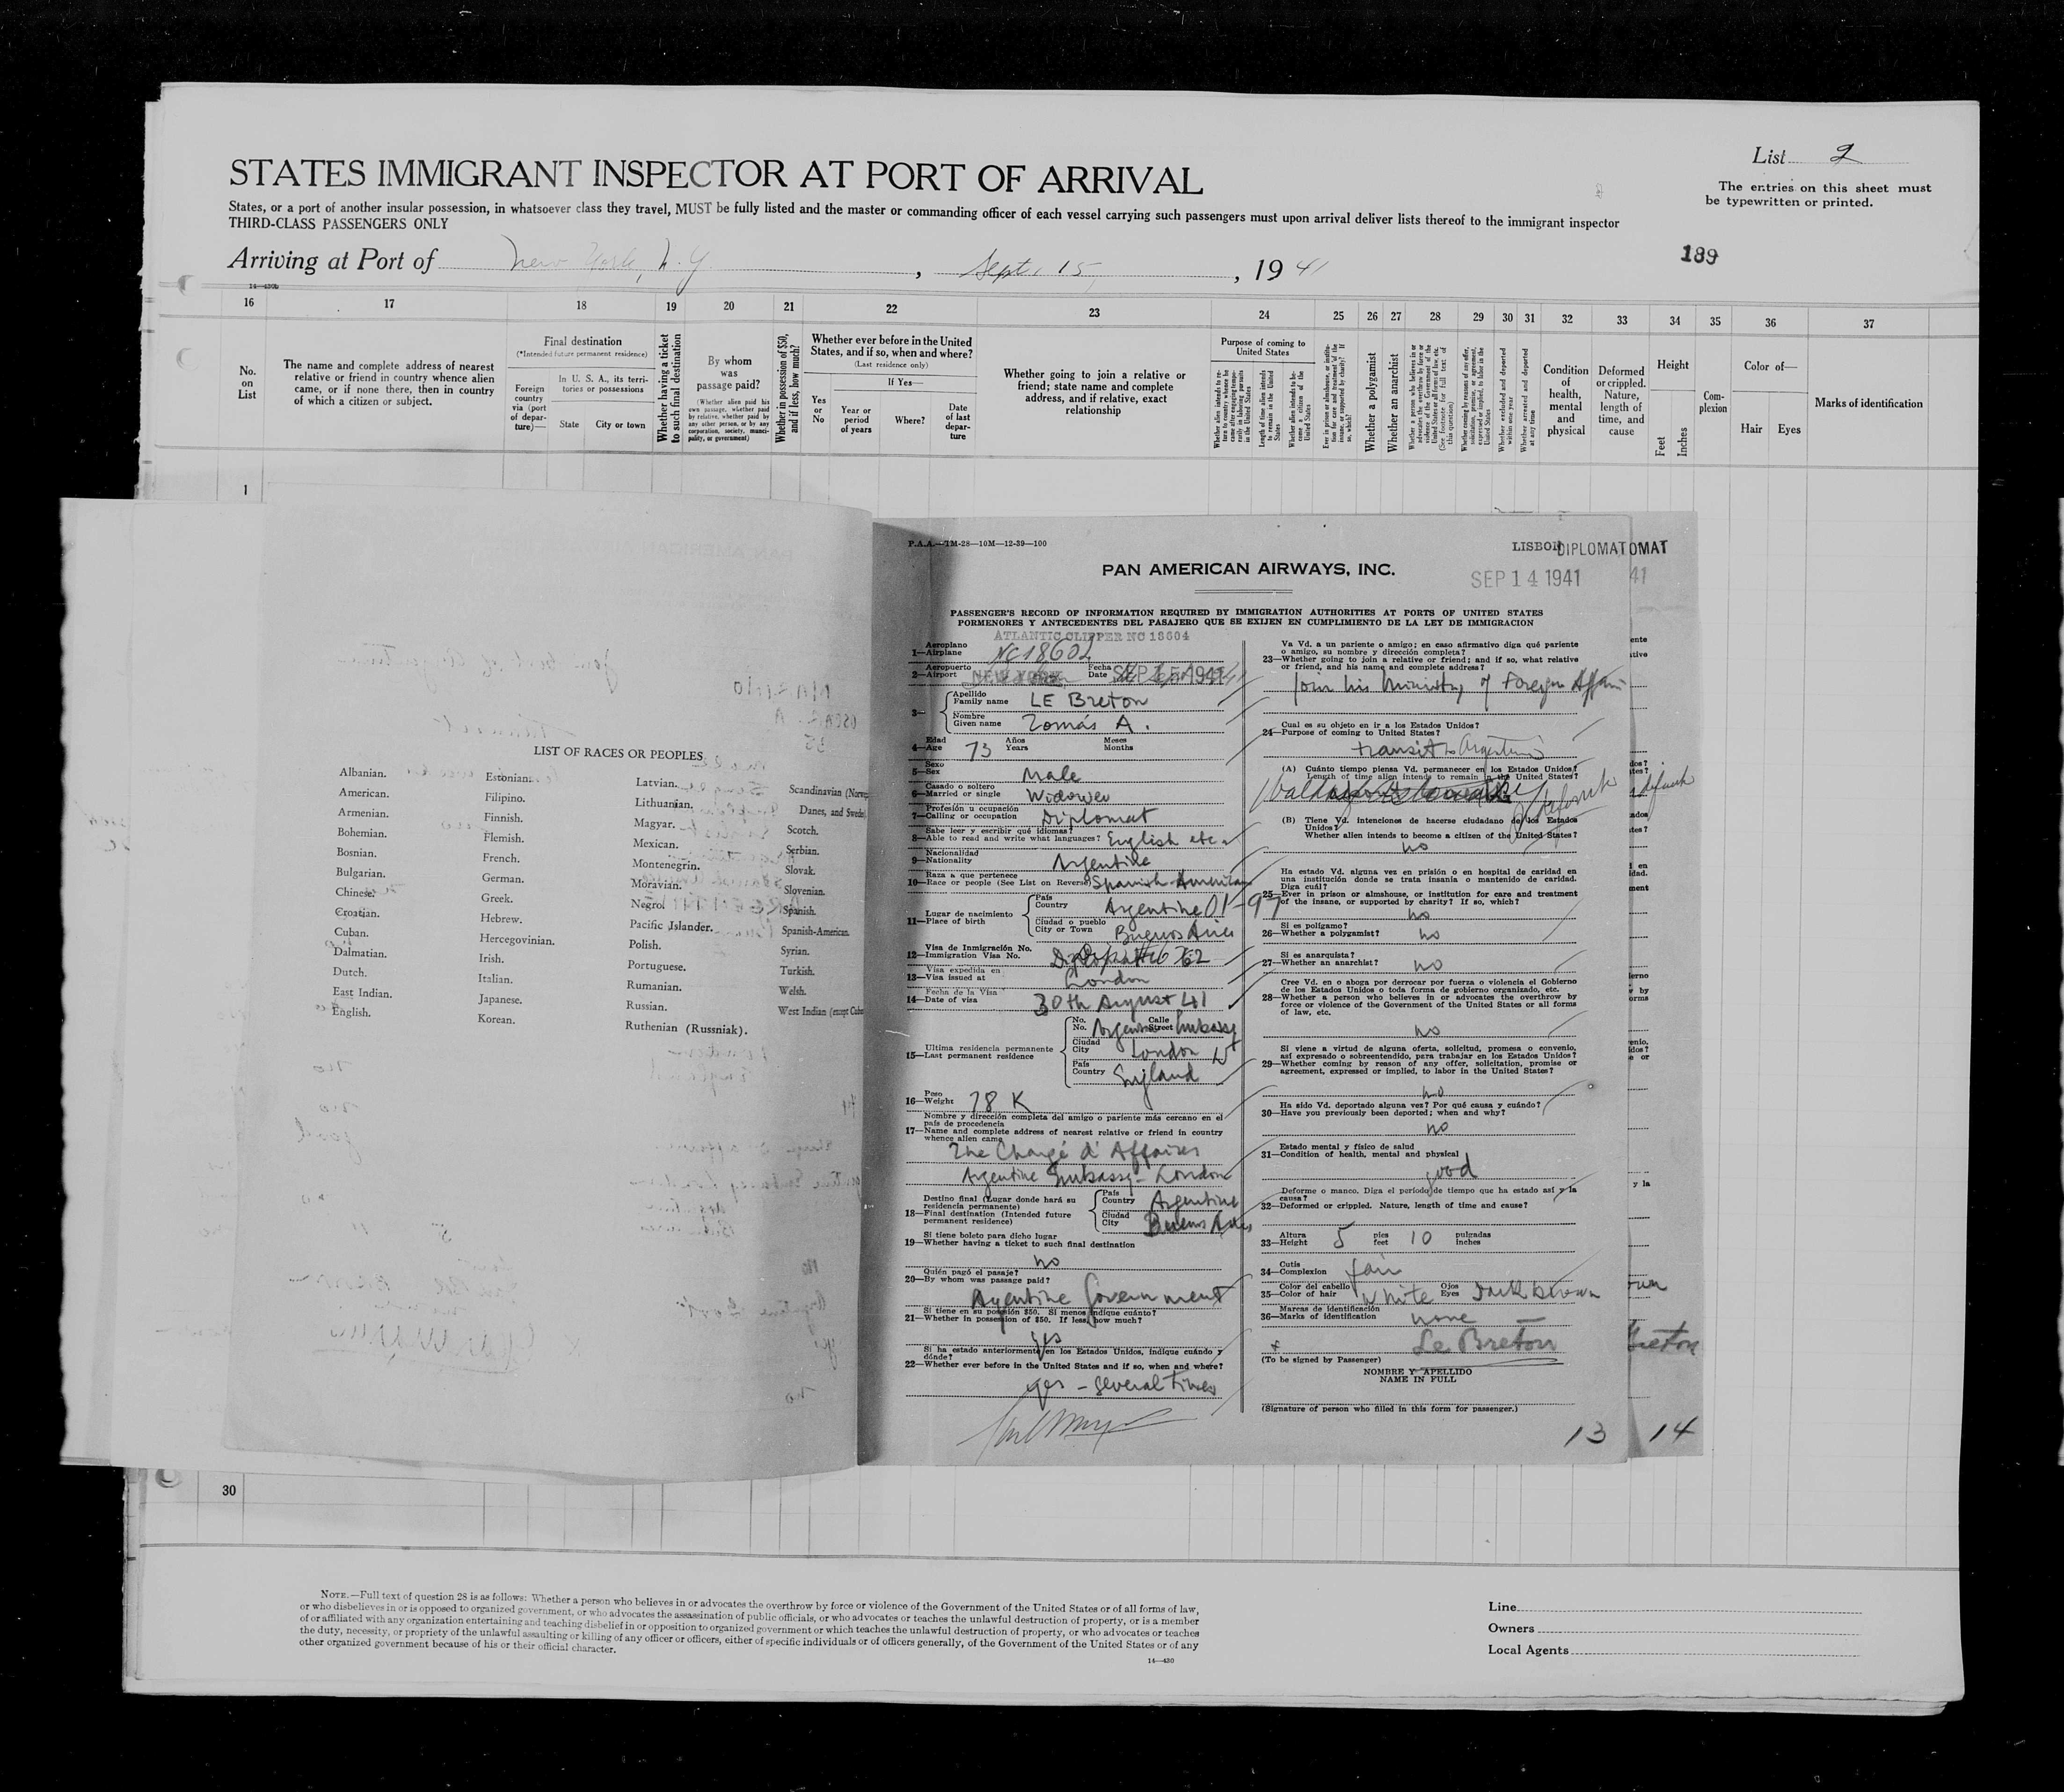 STATES IMMIGRANT INSPECTOR AT PORT OF ARRIVAL
List 2
The entries on this sheet must
be typewritten or printed.
States, or a port of another insular possession, in whatsoever class they travel, MUST be fully listed and the master or commanding officer of each vessel carrying such passengers must upon arrival deliver lists thereof to the immigrant inspector
THIRD-CLASS PASSENGERS ONLY
189
Arriving at Port of New York, N.Y. , Sept. 15, , 19 41
14—430b
16 17 18 19 20 21 22 23 24 25 26 27 28 29 30 31 32 33 34 35 36 37
No. on List
The name and complete address of nearest
relative or friend in country whence alien
came, or if none there, then in country
of which a citizen or subject.
Final destination
(*Intended future permanent residence)
Foreign country via (port of departure)—
In U. S. A., its territories or possessions
State
City or town
Whether having a ticket to such final destination
By whom was passage paid?
(Whether alien paid his own passage, whether paid by relative, whether paid by any other person, or by any corporation, society, municipality, or government)
Whether in possession of $50, and if less, how much?
Whether ever before in the United States, and if so, when and where?
(Last residence only)
If Yes—
Yes or No
Year or period of years
Where?
Date of last departure
Whether going to join a relative or
friend; state name and complete
address, and if relative, exact
relationship
Purpose of coming to United States
Length of time alien intends to remain in the United States
Whether alien intends to become a citizen of the United States
Whether a polygamist
Whether an anarchist
Whether excluded and deported within one year
Whether arrested and deported at any time
Condition of health, mental and physical
Deformed or crippled. Nature, length of time, and cause
Height
Feet
Inches
Complexion
Color of—
Hair
Eyes
Marks of identification
1
LIST OF RACES OR PEOPLES
Albanian.
American.
Armenian.
Bohemian.
Bosnian.
Bulgarian.
Chinese.
Croatian.
Cuban.
Dalmatian.
Dutch.
East Indian.
English.
Estonian.
Filipino.
Finnish.
Flemish.
French.
German.
Greek.
Hebrew.
Hercegovinian.
Irish.
Italian.
Japanese.
Korean.
Latvian.
Lithuanian.
Magyar.
Mexican.
Montenegrin.
Moravian.
Negro.
Pacific Islander.
Polish.
Portuguese.
Rumanian.
Russian.
Ruthenian (Russniak).
Scandinavian (Norwe
Danes, and Swedes
Scotch.
Serbian.
Slovak.
Slovenian.
Spanish.
Spanish-American.
Syrian.
Turkish.
Welsh.
West Indian (except Cuba
P.A.A.—TM-28—10M—12-39—100
LISBON DIPLOMAT OMAT
PAN AMERICAN AIRWAYS, INC.
SEP 14 1941 41
PASSENGER'S RECORD OF INFORMATION REQUIRED BY IMMIGRATION AUTHORITIES AT PORTS OF UNITED STATES
PORMENORES Y ANTECEDENTES DEL PASAJERO QUE SE EXIJEN EN CUMPLIMIENTO DE LA LEY DE IMMIGRACION
ATLANTIC CLIPPER NC 18604
Aeroplano
1—Airplane NC18602
Aeropuerto Fecha
2—Airport NEW YORK Date SEP 15 1941
Apellido
3— Family name LE Breton
Nombre
Given name Tomás A.
Edad Años Meses
4—Age 73 Years Months
Sexo
5—Sex Male
Casado o soltero
6—Married or single Widower
Profesión u ocupación
7—Calling or occupation Diplomat
Sabe leer y escribir qué idiomas?
8—Able to read and write what languages? English etc.
Nacionalidad
9—Nationality Argentine
Raza a que pertenece
10—Race or people (See List on Reverse) Spanish-American
Lugar de nacimiento
11—Place of birth
País
Country Argentine 01-97
Ciudad o pueblo
City or Town Buenos Aires
Visa de Inmigración No.
12—Immigration Visa No.
Visa expedida en
13—Visa issued at London
Fecha de la Visa
14—Date of visa 30th August 41
Ultima residencia permanente
15—Last permanent residence
No. Calle
No. Argentine Street Embassy
Ciudad
City London
País
Country England
Peso
16—Weight 78 K
Nombre y dirección completa del amigo o pariente más cercano en el
país de procedencia
17—Name and complete address of nearest relative or friend in country
whence alien came
The Chargé d'Affaires
Argentine Embassy - London
Destino final (Lugar donde hará su
residencia permanente)
18—Final destination (Intended future
permanent residence)
País
Country Argentine
Ciudad
City Buenos Aires
Si tiene boleto para dicho lugar
19—Whether having a ticket to such final destination
no
Quién pagó el pasaje?
20—By whom was passage paid?
Argentine Government
Si tiene en su posesión $50. Si menos, indique cuánto?
21—Whether in possession of $50. If less, how much?
yes
Si ha estado anteriormente en los Estados Unidos, indique cuándo y
dónde?
22—Whether ever before in the United States and if so, when and where?
yes - several times
Va Vd. a un pariente o amigo; en caso afirmativo diga qué pariente
o amigo, su nombre y dirección completa?
23—Whether going to join a relative or friend; and if so, what relative
or friend, and his name and complete address?
Join his Ministry of Foreign Affairs
Cual es su objeto en ir a los Estados Unidos?
24—Purpose of coming to United States?
transit to Argentine
(A) Cuánto tiempo piensa Vd. permanecer en los Estados Unidos?
Length of time alien intends to remain in the United States?
(B) Tiene Vd. intenciones de hacerse ciudadano de los Estados
Unidos?
Whether alien intends to become a citizen of the United States?
no
Ha estado Vd. alguna vez en prisión o en hospital de caridad en
una institución donde se trata insania o mantenido de caridad.
Diga cuál?
25—Ever in prison or almshouse, or institution for care and treatment
of the insane, or supported by charity? If so, which?
no
Si es polígamo?
26—Whether a polygamist? no
Si es anarquista?
27—Whether an anarchist? no
Cree Vd. en o aboga por derrocar por fuerza o violencia el Gobierno
de los Estados Unidos o toda forma de gobierno organizado, etc.
28—Whether a person who believes in or advocates the overthrow by
force or violence of the Government of the United States or all forms
of law, etc.
no
Si viene a virtud de alguna oferta, solicitud, promesa o convenio,
así expresado o sobreentendido, para trabajar en los Estados Unidos?
29—Whether coming by reason of any offer, solicitation, promise or
agreement, expressed or implied, to labor in the United States?
no
Ha sido Vd. deportado alguna vez? Por qué causa y cuándo?
30—Have you previously been deported; when and why?
no
Estado mental y físico de salud
31—Condition of health, mental and physical
good
Deforme o manco. Diga el período de tiempo que ha estado así y la
causa?
32—Deformed or crippled. Nature, length of time and cause?
Altura pies pulgadas
33—Height 5 feet 10 inches
Cutis
34—Complexion fair
Color del cabello Ojos
35—Color of hair White Eyes Dark brown
Marcas de identificación
36—Marks of identification none
Le Breton
(To be signed by Passenger)
NOMBRE Y APELLIDO
NAME IN FULL
(Signature of person who filled in this form for passenger.)
13 14
30
NOTE.—Full text of question 28 is as follows: Whether a person who believes in or advocates the overthrow by force or violence of the Government of the United States or of all forms of law,
or who disbelieves in or is opposed to organized government, or who advocates the assassination of public officials, or who advocates or teaches the unlawful destruction of property, or is a member
of or affiliated with any organization entertaining and teaching disbelief in or opposition to organized government or which teaches the unlawful destruction of property, or who advocates or teaches
the duty, necessity, or propriety of the unlawful assaulting or killing of any officer or officers, either of specific individuals or of officers generally, of the Government of the United States or of any
other organized government because of his or their official character.
14—430
Line
Owners
Local Agents